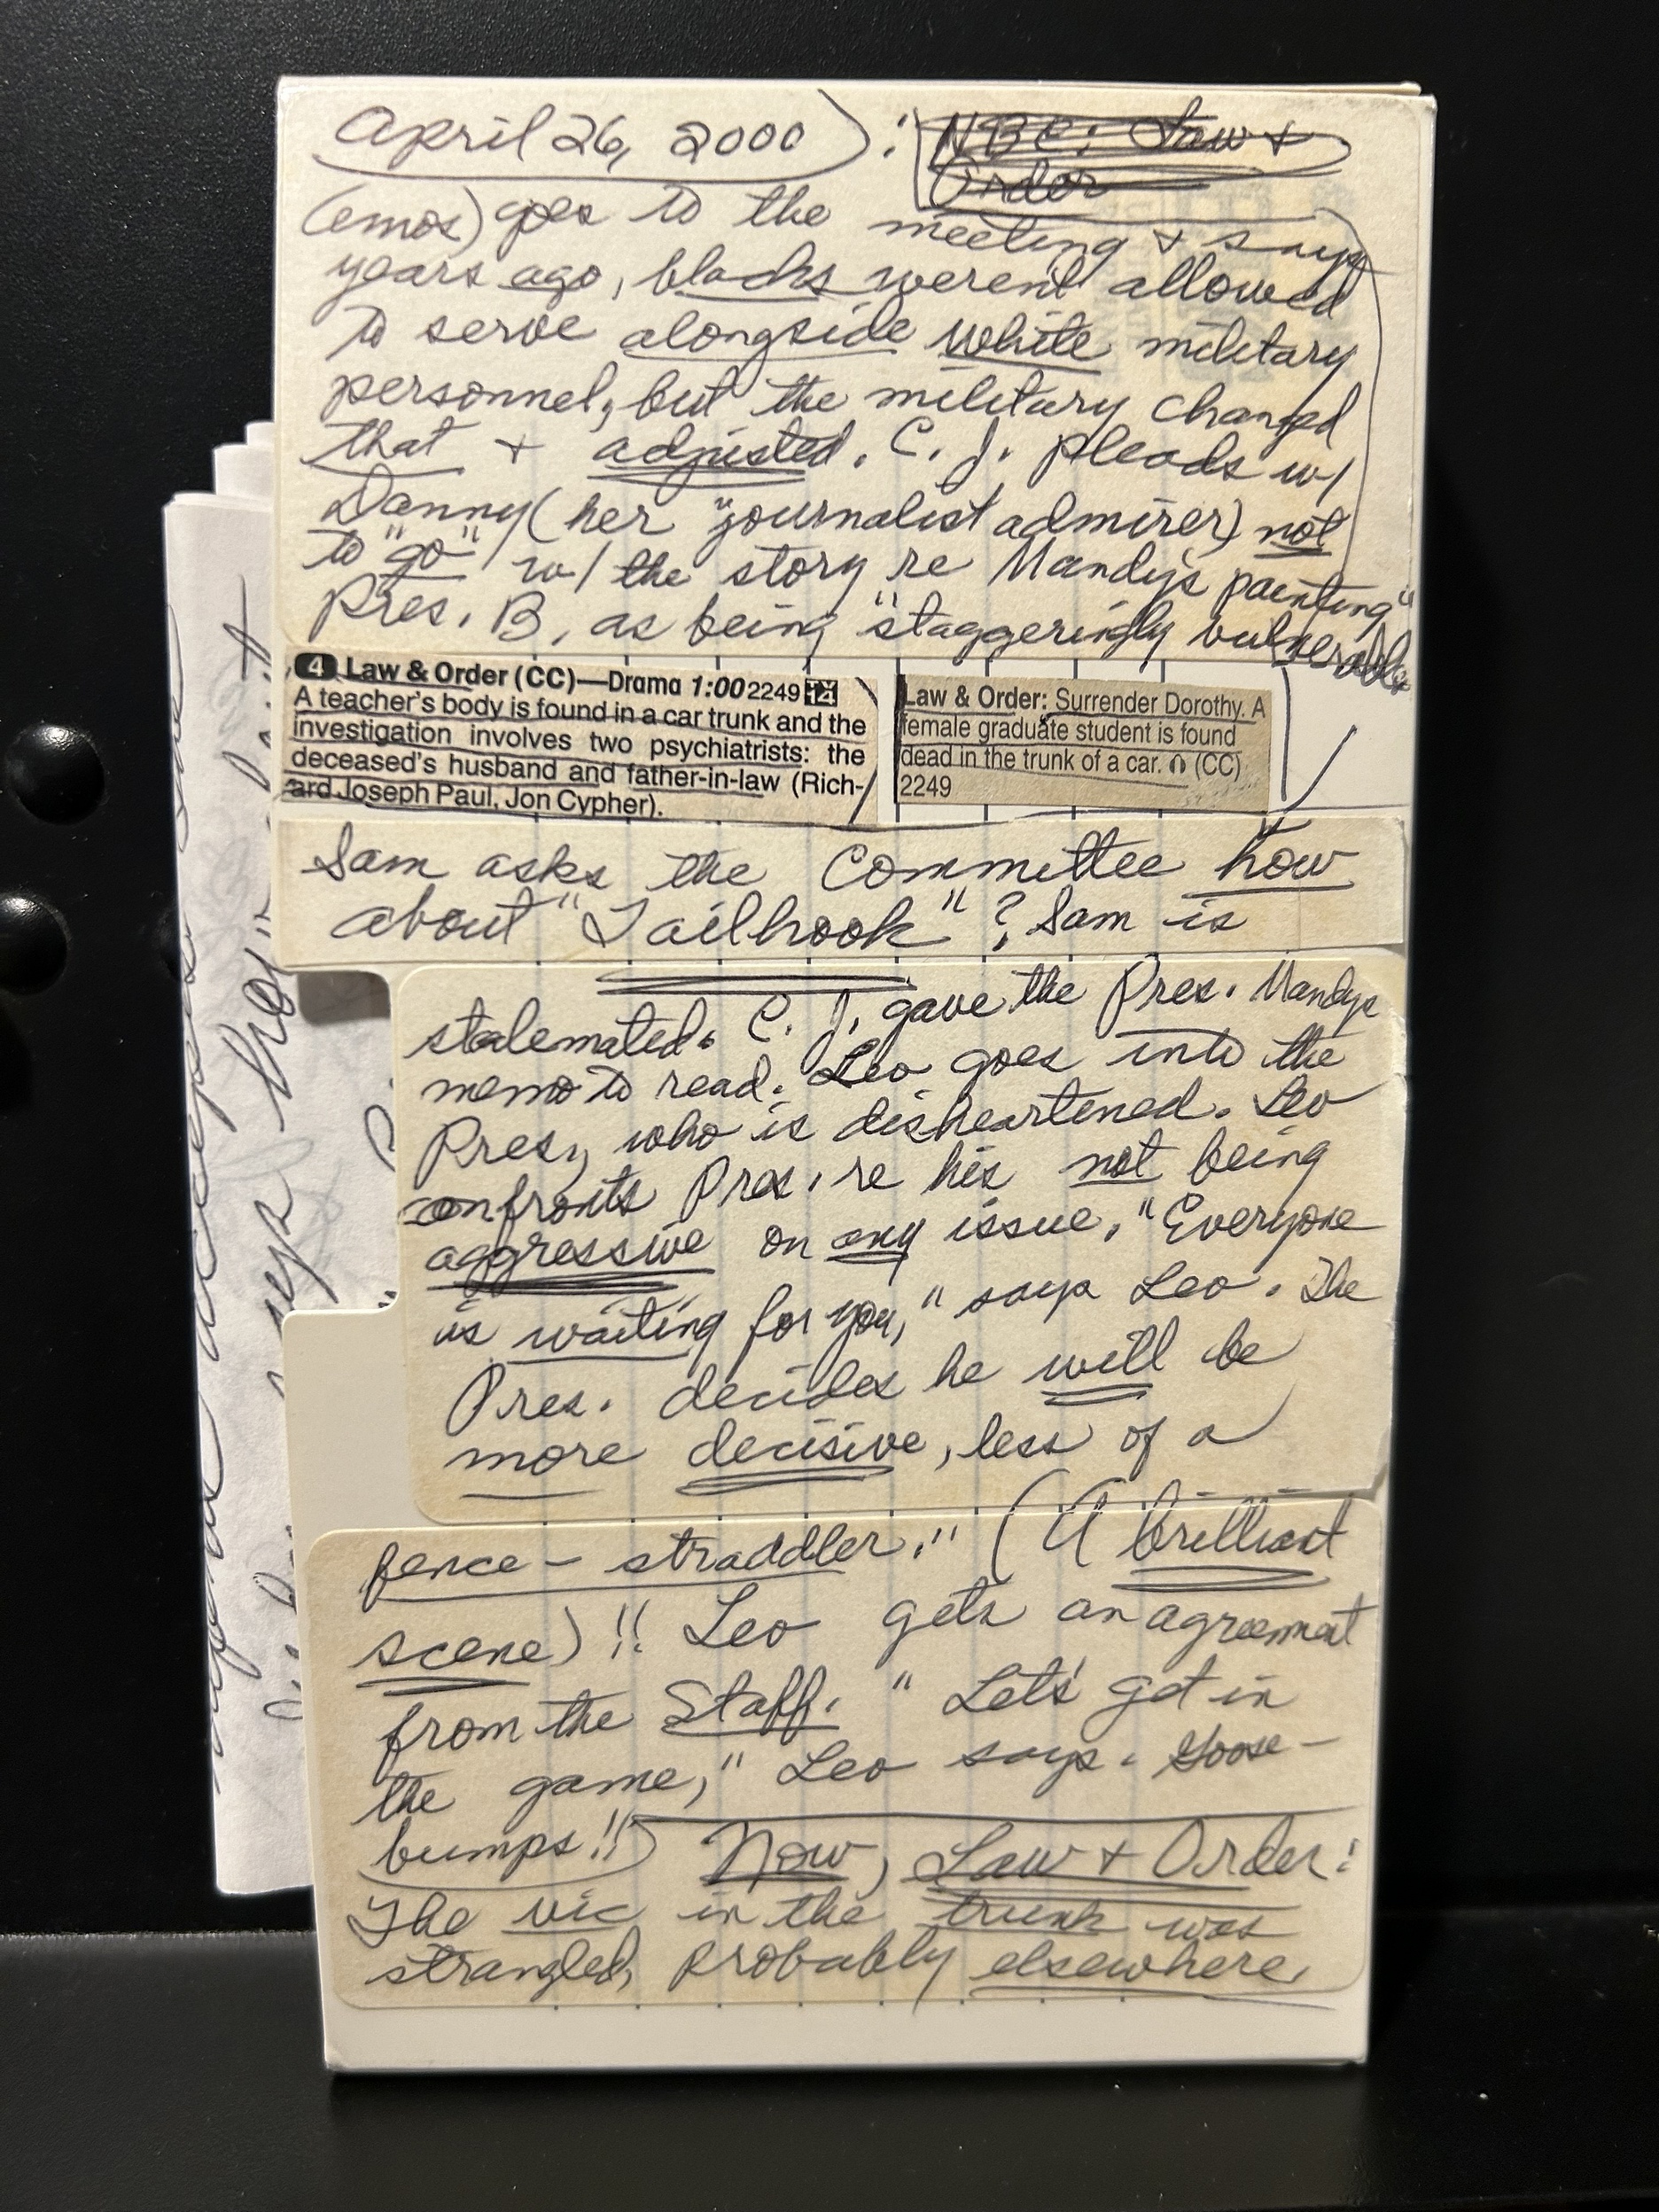 April 26, 2000) : NBC: Law +
Order
(emos) goes to the meeting + says
years ago, blacks weren't allowed
to serve alongside white military
personnel, but the military changed
that + adjusted. C. J. pleads w/
Danny (her "journalist admirer) not
to "go" w/ the story re Mandy's painting"
Pres. B. as being "staggeringly vulnerable
4 Law & Order (CC)—Drama 1:00 2249 14
A teacher's body is found in a car trunk and the
investigation involves two psychiatrists: the
deceased's husband and father-in-law (Rich-
ard Joseph Paul, Jon Cypher).
Law & Order: Surrender Dorothy. A
female graduate student is found
dead in the trunk of a car. (CC)
2249
Sam asks the Committee how
about "Tailhook"? Sam is
stalemated. C. J. gave the Pres. Mandys
memo to read. Leo goes into the
Pres., who is disheartened. Leo
confronts Pres. re his not being
aggressive on any issue. "Everyone
is waiting for you," says Leo. The
Pres. decides he will be
more decisive, less of a
fence - straddler." (A brilliant
scene)!! Leo gets an agreement
from the Staff. "Let's get in
the game," Leo says. Goose-
bumps!!) Now, Law + Order:
The vic in the trunk was
strangled, probably elsewhere.